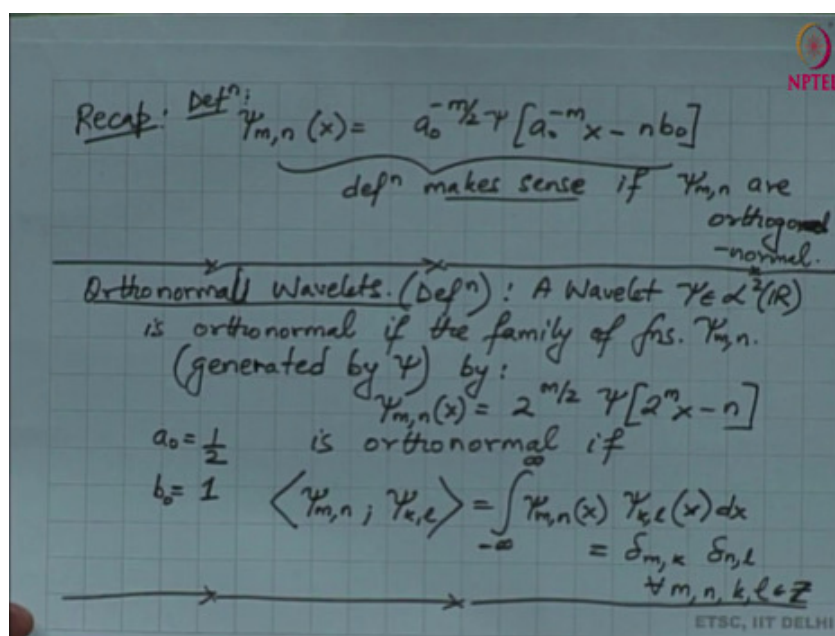 NPTEL
Recap: Defⁿ:
Ψm,n (x) = a₀^{-m/2} Ψ[a₀^{-m} x - n b₀]
defⁿ makes sense if Ψm,n are
orthogonal
-normal.
Orthonormal Wavelets. (Defⁿ): A Wavelet Ψ ∈ L²(ℝ)
is orthonormal if the family of fns. Ψm,n.
(generated by Ψ) by:
Ψm,n(x) = 2^{m/2} Ψ[2^m x - n]
a₀ = 1/2 is orthonormal if
b₀ = 1 ⟨Ψm,n ; Ψk,l⟩ = ∫_{-∞}^{∞} Ψm,n(x) Ψk,l(x) dx
= δm,k δn,l
∀ m, n, k, l ∈ Z
ETSC, IIT DELHI